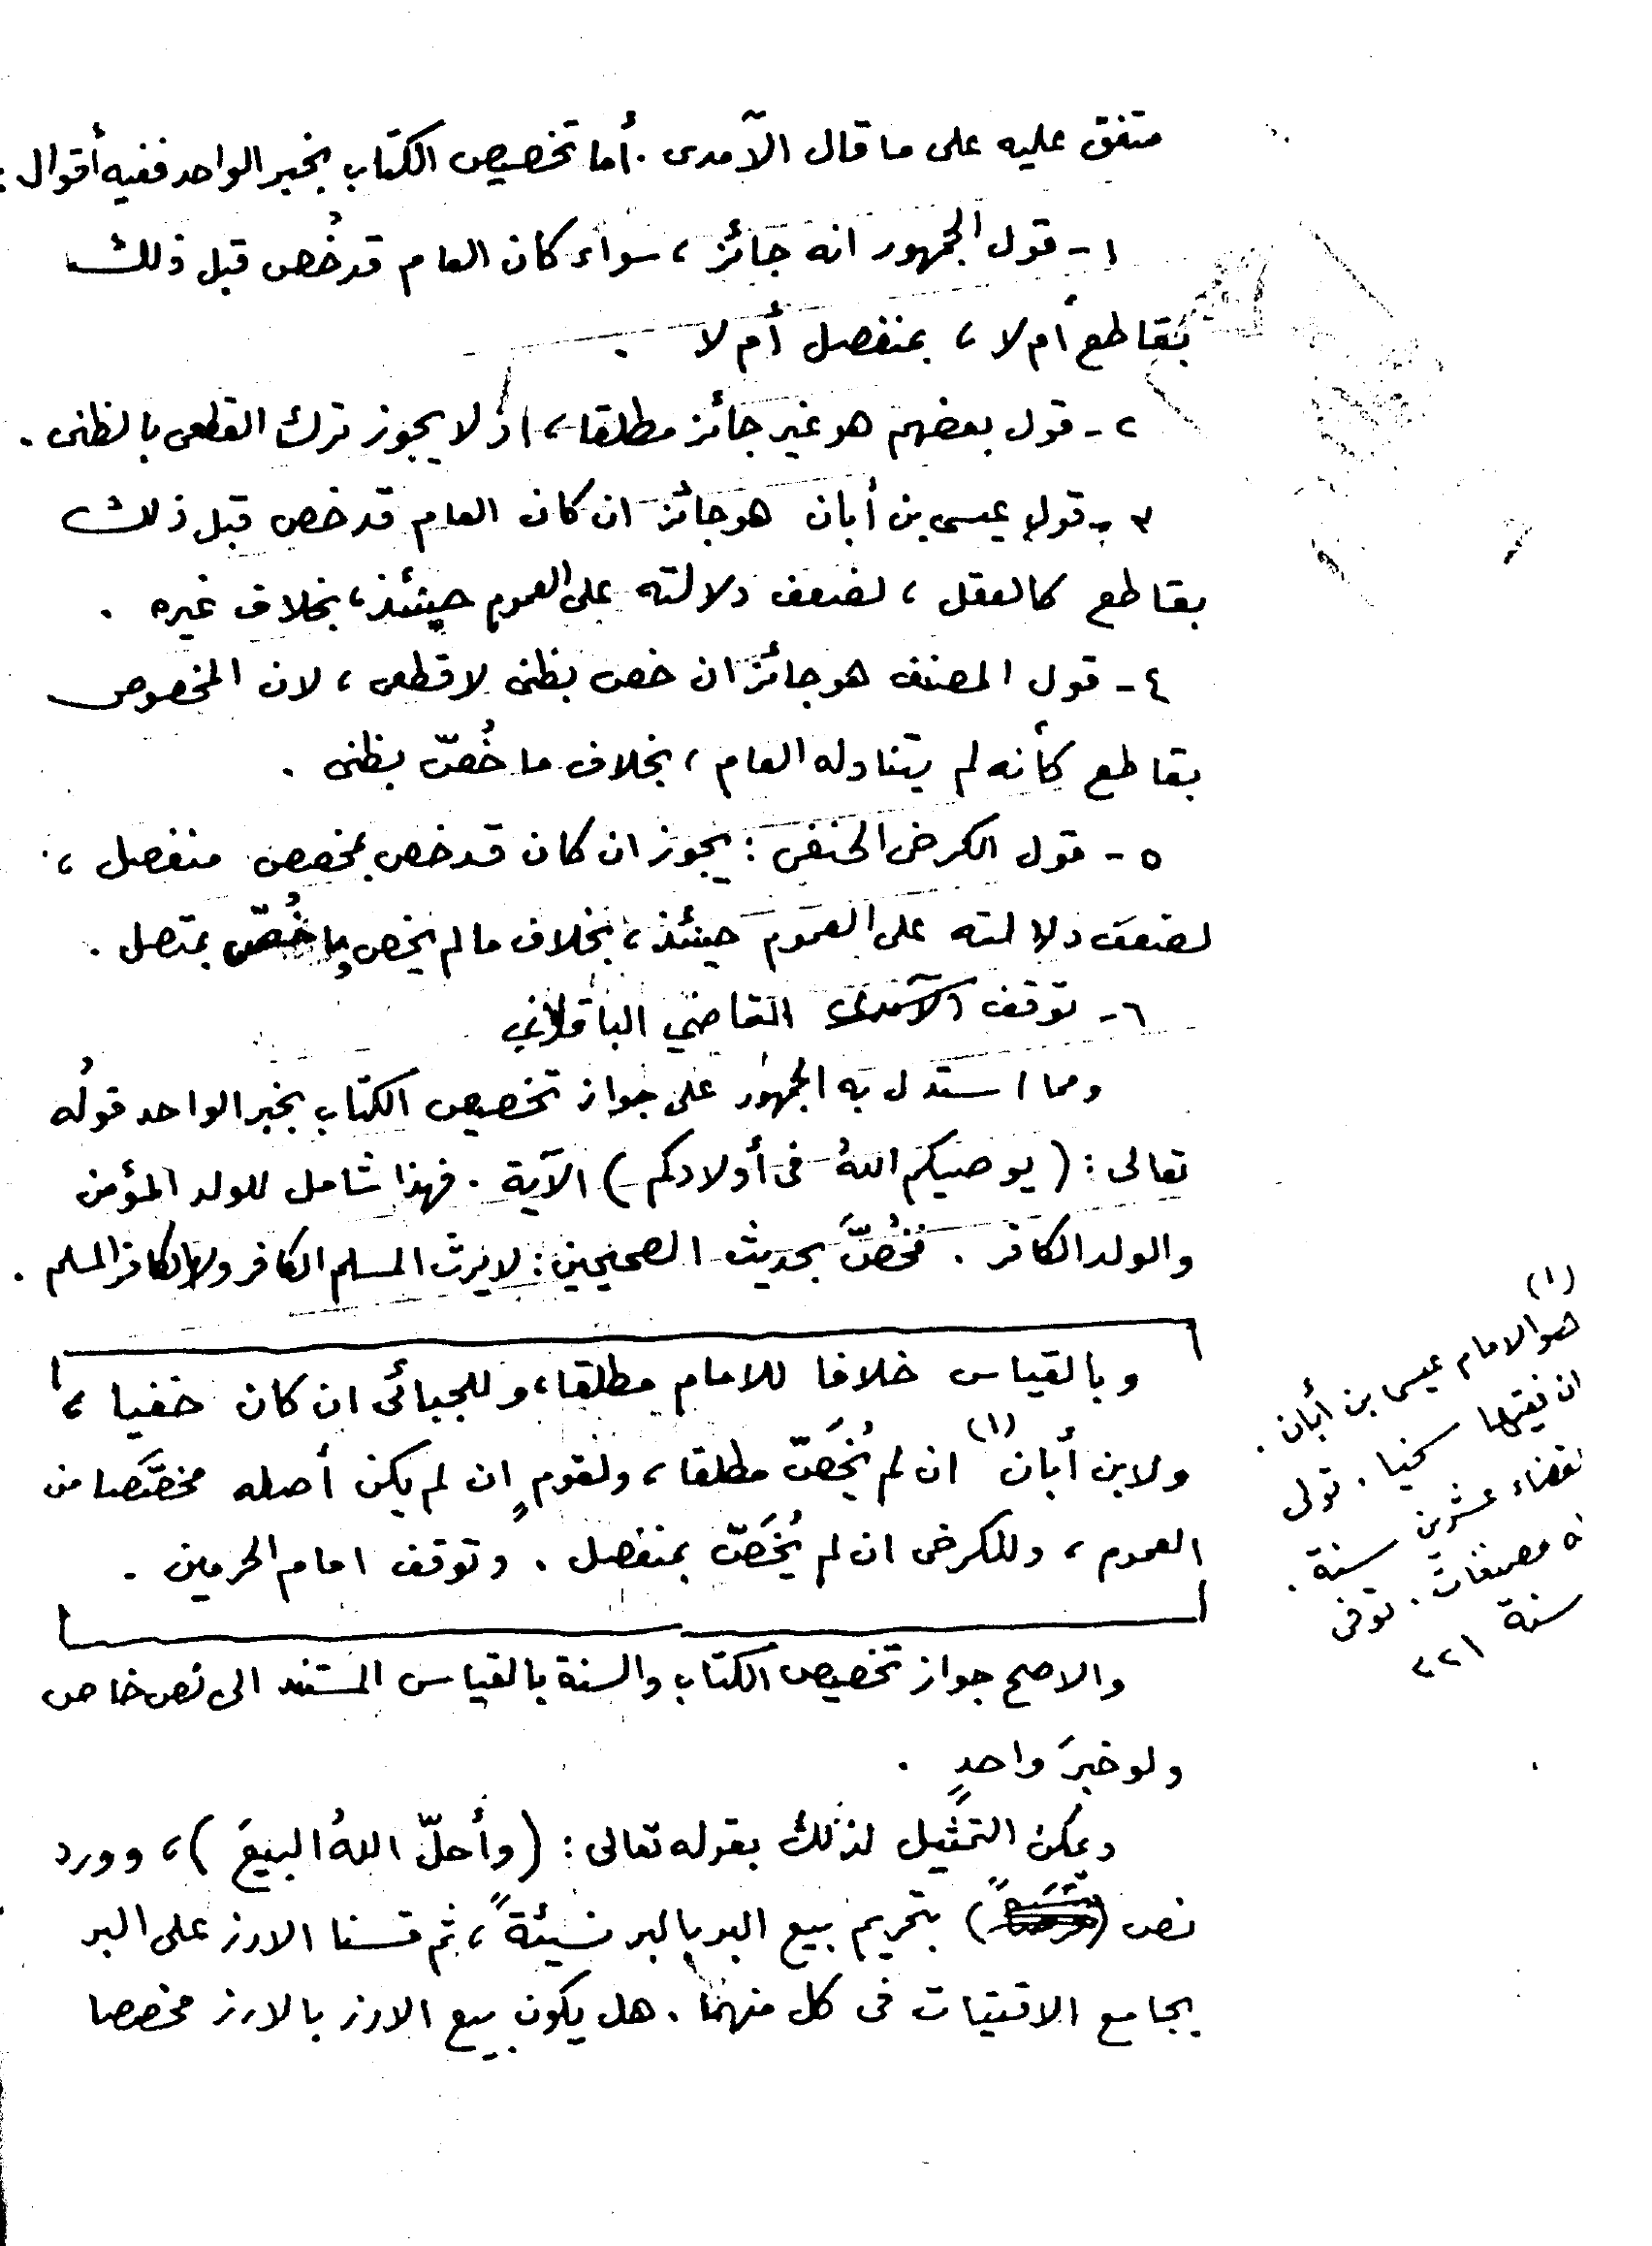 متفق عليه على ما قال الآمدى . أما تخصيص الكتاب بخبر الواحد ففيه أقوال :
١ - قول الجمهور انه جائز ، سواء كان العام قد خُص قبل ذلك
بقاطع أم لا ، بمنفصل أم لا .
٢ - قول بعضهم هو غير جائز مطلقا ، اذ لا يجوز ترك القطعى بالظنى .
٣ - قول عيسى بن أبان هو جائز ان كان العام قد خص قبل ذلك
بقاطع كالعقل ، لضعف دلالته على العموم حينئذ ، بخلاف غيره .
٤ - قول المصنف هو جائز ان خص بظنى لا قطعى ، لان المخصوص
بقاطع كأنه لم يتناوله العام ، بخلاف ما خُصّ بظنى .
٥ - قول الكرخى الحنفى : يجوز ان كان قد خص بمخصص منفصل ،
لضعف دلالته على العموم حينئذ ، بخلاف ما لم يخص وما خُصّ بمتصل .
٦ - توقف القاضي الباقلاني
ومما استدل به الجمهور على جواز تخصيص الكتاب بخبر الواحد قولُه
تعالى : ( يوصيكم اللهُ فى أولادكم ) الآية . فهذا شامل للولد المؤمن
والولد الكافر . فخُصَّ بحديث الصحيحين : لا يرث المسلم الكافر ولا الكافر المسلم .
وبالقياس خلافا للامام مطلقا ، وللجبائى ان كان خفيا ،
ولابن أبان (١) ان لم يُخَصّ مطلقا ، ولقومٍ ان لم يكن أصله مخصَّصا من
العموم ، وللكرخى ان لم يُخَصّ بمنفصل . وتوقف امام الحرمين .
والاصح جواز تخصيص الكتاب والسنة بالقياس المستند الى نص خاص
ولو خبرَ واحدٍ .
ويمكن التمثيل لذلك بقوله تعالى : ( وأحلّ اللهُ البيعَ ) ، وورد
نص بتحريم بيع البر بالبر نسيئةً ، ثم قسنا الارز على البر
بجامع الاقتيات فى كل منهما . هل يكون بيع الارز بالارز مخصصا
(١)
هو الامام عيسى بن أبان .
ان فقيها سخيا . تولى
لقضاء عشرين سنة .
ه مصنفات . توفى
سنة ٢٢١